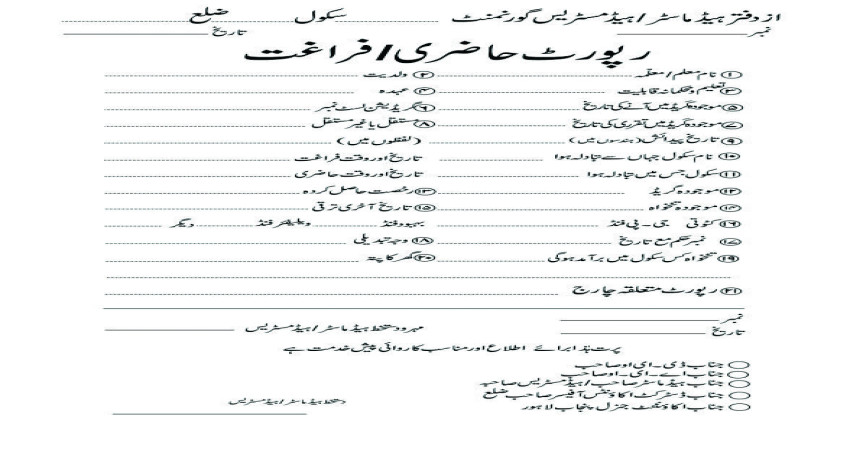 از دفتر ہیڈ ماسٹر / ہیڈ مسٹریس گورنمنٹ سکول ضلع
نمبر تاریخ
رپورٹ حاضری / فراغت
۱ نام معلم / معلمہ ۲ ولدیت
۳ تعلیم و محکمانہ قابلیت ۴ عہدہ
۵ موجودہ گریڈ میں آنے کی تاریخ ۶ گریڈیشن لسٹ نمبر
۷ موجودہ گریڈ میں تقرری کی تاریخ ۸ مستقل یا غیر مستقل
۹ تاریخ پیدائش (ہندسوں میں) (لفظوں میں)
۱۰ نام سکول جہاں سے تبادلہ ہوا تاریخ اور وقت فراغت
۱۱ سکول جس میں تبادلہ ہوا تاریخ اور وقت حاضری
۱۲ موجودہ گریڈ ۱۳ رخصت حاصل کردہ
۱۴ موجودہ تنخواہ ۱۵ تاریخ آخری ترقی
۱۶ کٹوتی جی۔پی فنڈ بہبود فنڈ ویلفیئر فنڈ دیگر
۱۷ نمبر حکم مع تاریخ ۱۸ وجہ تبدیلی
۱۹ تنخواہ کس سکول میں برآمد ہوگی ۲۰ گھر کا پتہ
۲۱ رپورٹ متعلقہ چارج
نمبر
تاریخ مہر و دستخط ہیڈ ماسٹر / ہیڈ مسٹریس
پرت ہذا برائے اطلاع اور مناسب کاروائی پیش خدمت ہے
جناب ڈی۔ای او صاحب
جناب اے۔ای۔او صاحب
جناب ہیڈ ماسٹر صاحب / ہیڈ مسٹریس صاحبہ
جناب ڈسٹرکٹ اکاؤنٹس آفیسر صاحب ضلع
جناب اکاؤنٹنٹ جنرل پنجاب لاہور
دستخط ہیڈ ماسٹر / ہیڈ مسٹریس